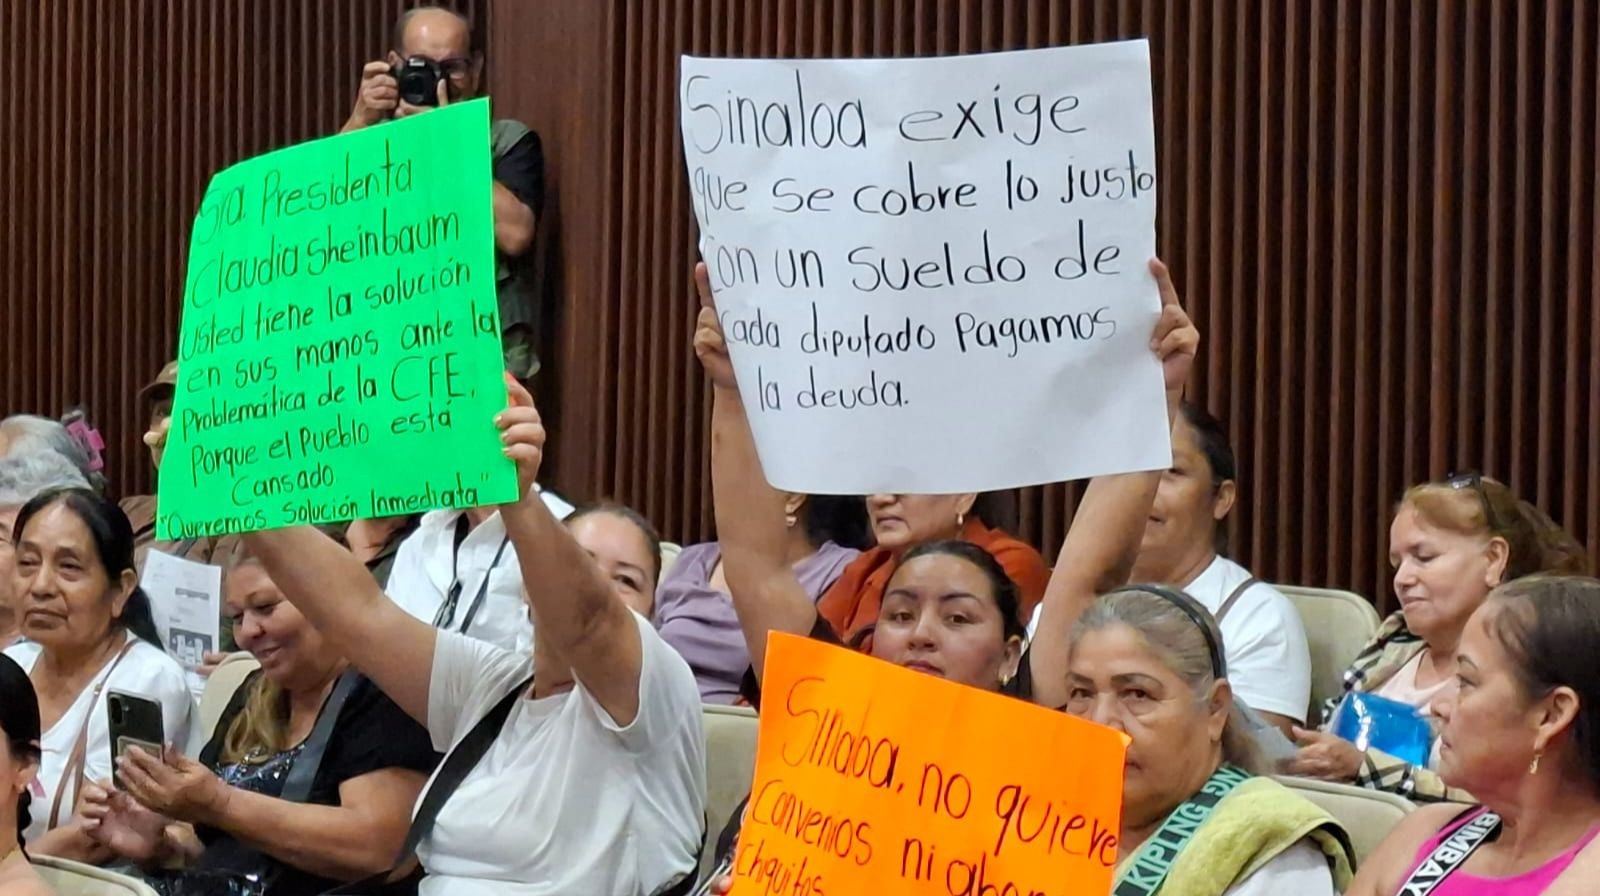 Sra. Presidenta
Claudia Sheinbaum
Usted tiene la solución
en sus manos ante la
Problemática de la CFE,
Porque el Pueblo está
Cansado.
"Queremos Solución Inmediata"
Sinaloa exige
que se cobre lo justo
Con un sueldo de
cada diputado Pagamos
la deuda.
Sinaloa, no quiere
Convenios ni
chiquitos
KIPLING
BIMBAY